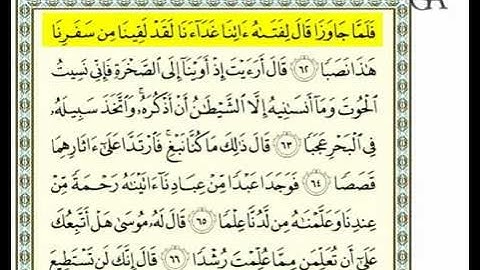 فَلَمَّا جَاوَزَا قَالَ لِفَتَىٰهُ ءَاتِنَا غَدَآءَنَا لَقَدْ لَقِينَا مِن سَفَرِنَا
هَٰذَا نَصَبًا ٦٢ قَالَ أَرَءَيْتَ إِذْ أَوَيْنَآ إِلَى ٱلصَّخْرَةِ فَإِنِّى نَسِيتُ
ٱلْحُوتَ وَمَآ أَنسَىٰنِيهُ إِلَّا ٱلشَّيْطَٰنُ أَنْ أَذْكُرَهُۥ ۚ وَٱتَّخَذَ سَبِيلَهُۥ
فِى ٱلْبَحْرِ عَجَبًا ٦٣ قَالَ ذَٰلِكَ مَا كُنَّا نَبْغِ ۚ فَٱرْتَدَّا عَلَىٰٓ ءَاثَارِهِمَا
قَصَصًا ٦٤ فَوَجَدَا عَبْدًا مِّنْ عِبَادِنَآ ءَاتَيْنَٰهُ رَحْمَةً مِّنْ
عِندِنَا وَعَلَّمْنَٰهُ مِن لَّدُنَّا عِلْمًا ٦٥ قَالَ لَهُۥ مُوسَىٰ هَلْ أَتَّبِعُكَ
عَلَىٰٓ أَن تُعَلِّمَنِ مِمَّا عُلِّمْتَ رُشْدًا ٦٦ قَالَ إِنَّكَ لَن تَسْتَطِيعَ